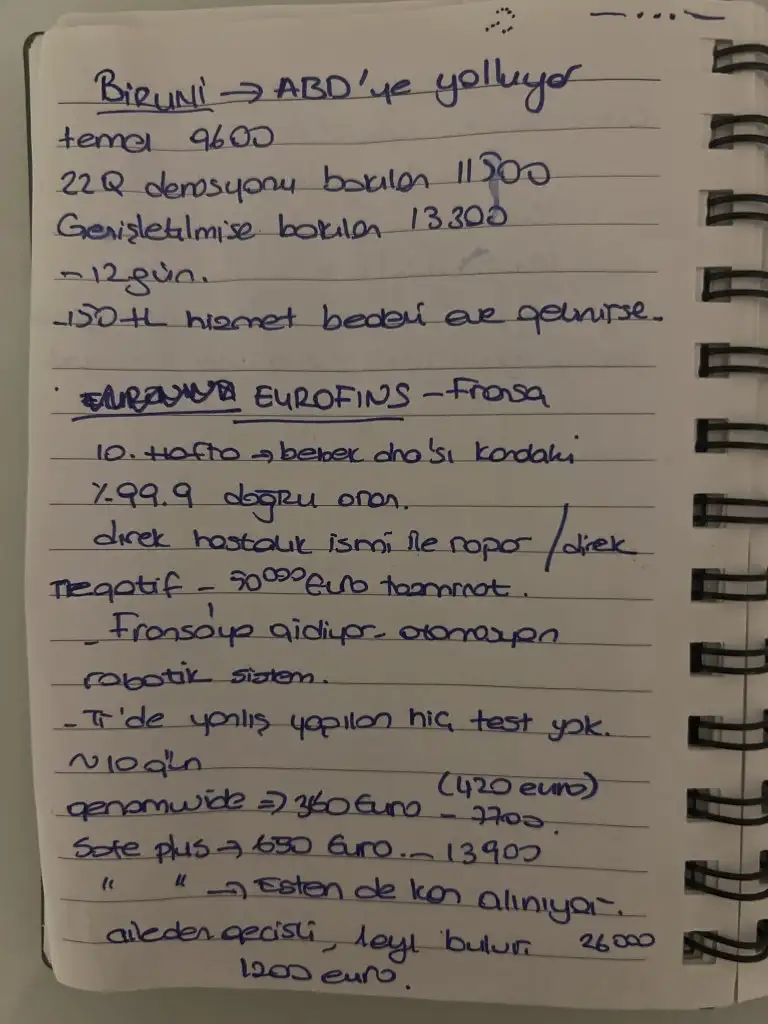 BiRUNi → ABD'ye yolluyor
temel 9600
22Q delesyonu bakılan 11500
Genişletilmişe bakılan 13300
- 12 gün.
- 150 TL hizmet bedeli eve gelinirse.
EUROFINS - Fransa
10. Hafta → bebek dna'sı kandaki
%99.9 doğru oran.
direk hastalık ismi ile rapor / direk
negatif - 50000 Euro tazminat.
- Fransa'ya gidiyor - otomasyon
robotik sistem.
- Tr'de yanlış yapılan hiç test yok.
~10 gün
(420 euro)
genomwide ⇒ 360 Euro - 7700.
Safe plus → 650 Euro. - 13900
" " → Eşten de kan alınıyor.
aileden geçişli, bulur. 26000
1200 euro.